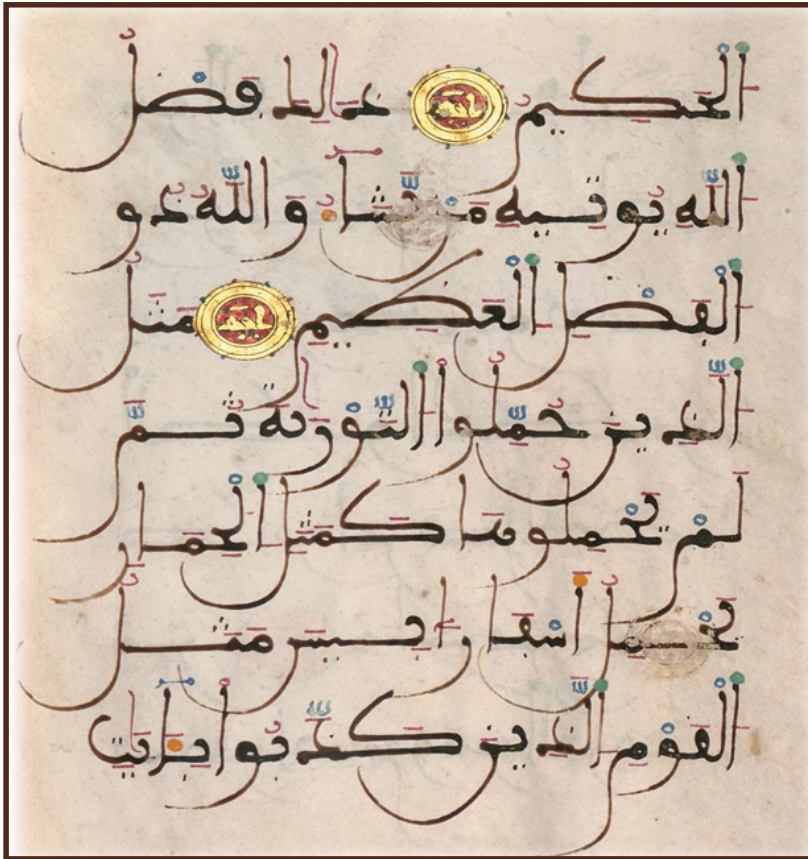 اَ۬لْحَكِيمُ ذَٰلِكَ فَضْلُ
اُ۬للَّهِ يُوتِيهِ مَنْ يَّشَآءُ وَاللَّهُ ذُو
اُ۬لْفَضْلِ اِ۬لْعَظِيمِ مَثَلُ
اُ۬لَّذِينَ حُمِّلُوا اُ۬لتَّوْرَىٰةَ ثُمَّ
لَمْ يَحْمِلُوهَا كَمَثَلِ اِ۬لْحِمَارِ
يَحْمِلُ أَسْفَاراً بِيسَ مَثَلُ
اُ۬لْقَوْمِ اِ۬لَّذِينَ كَذَّبُوا بِـَٔايَٰتِ